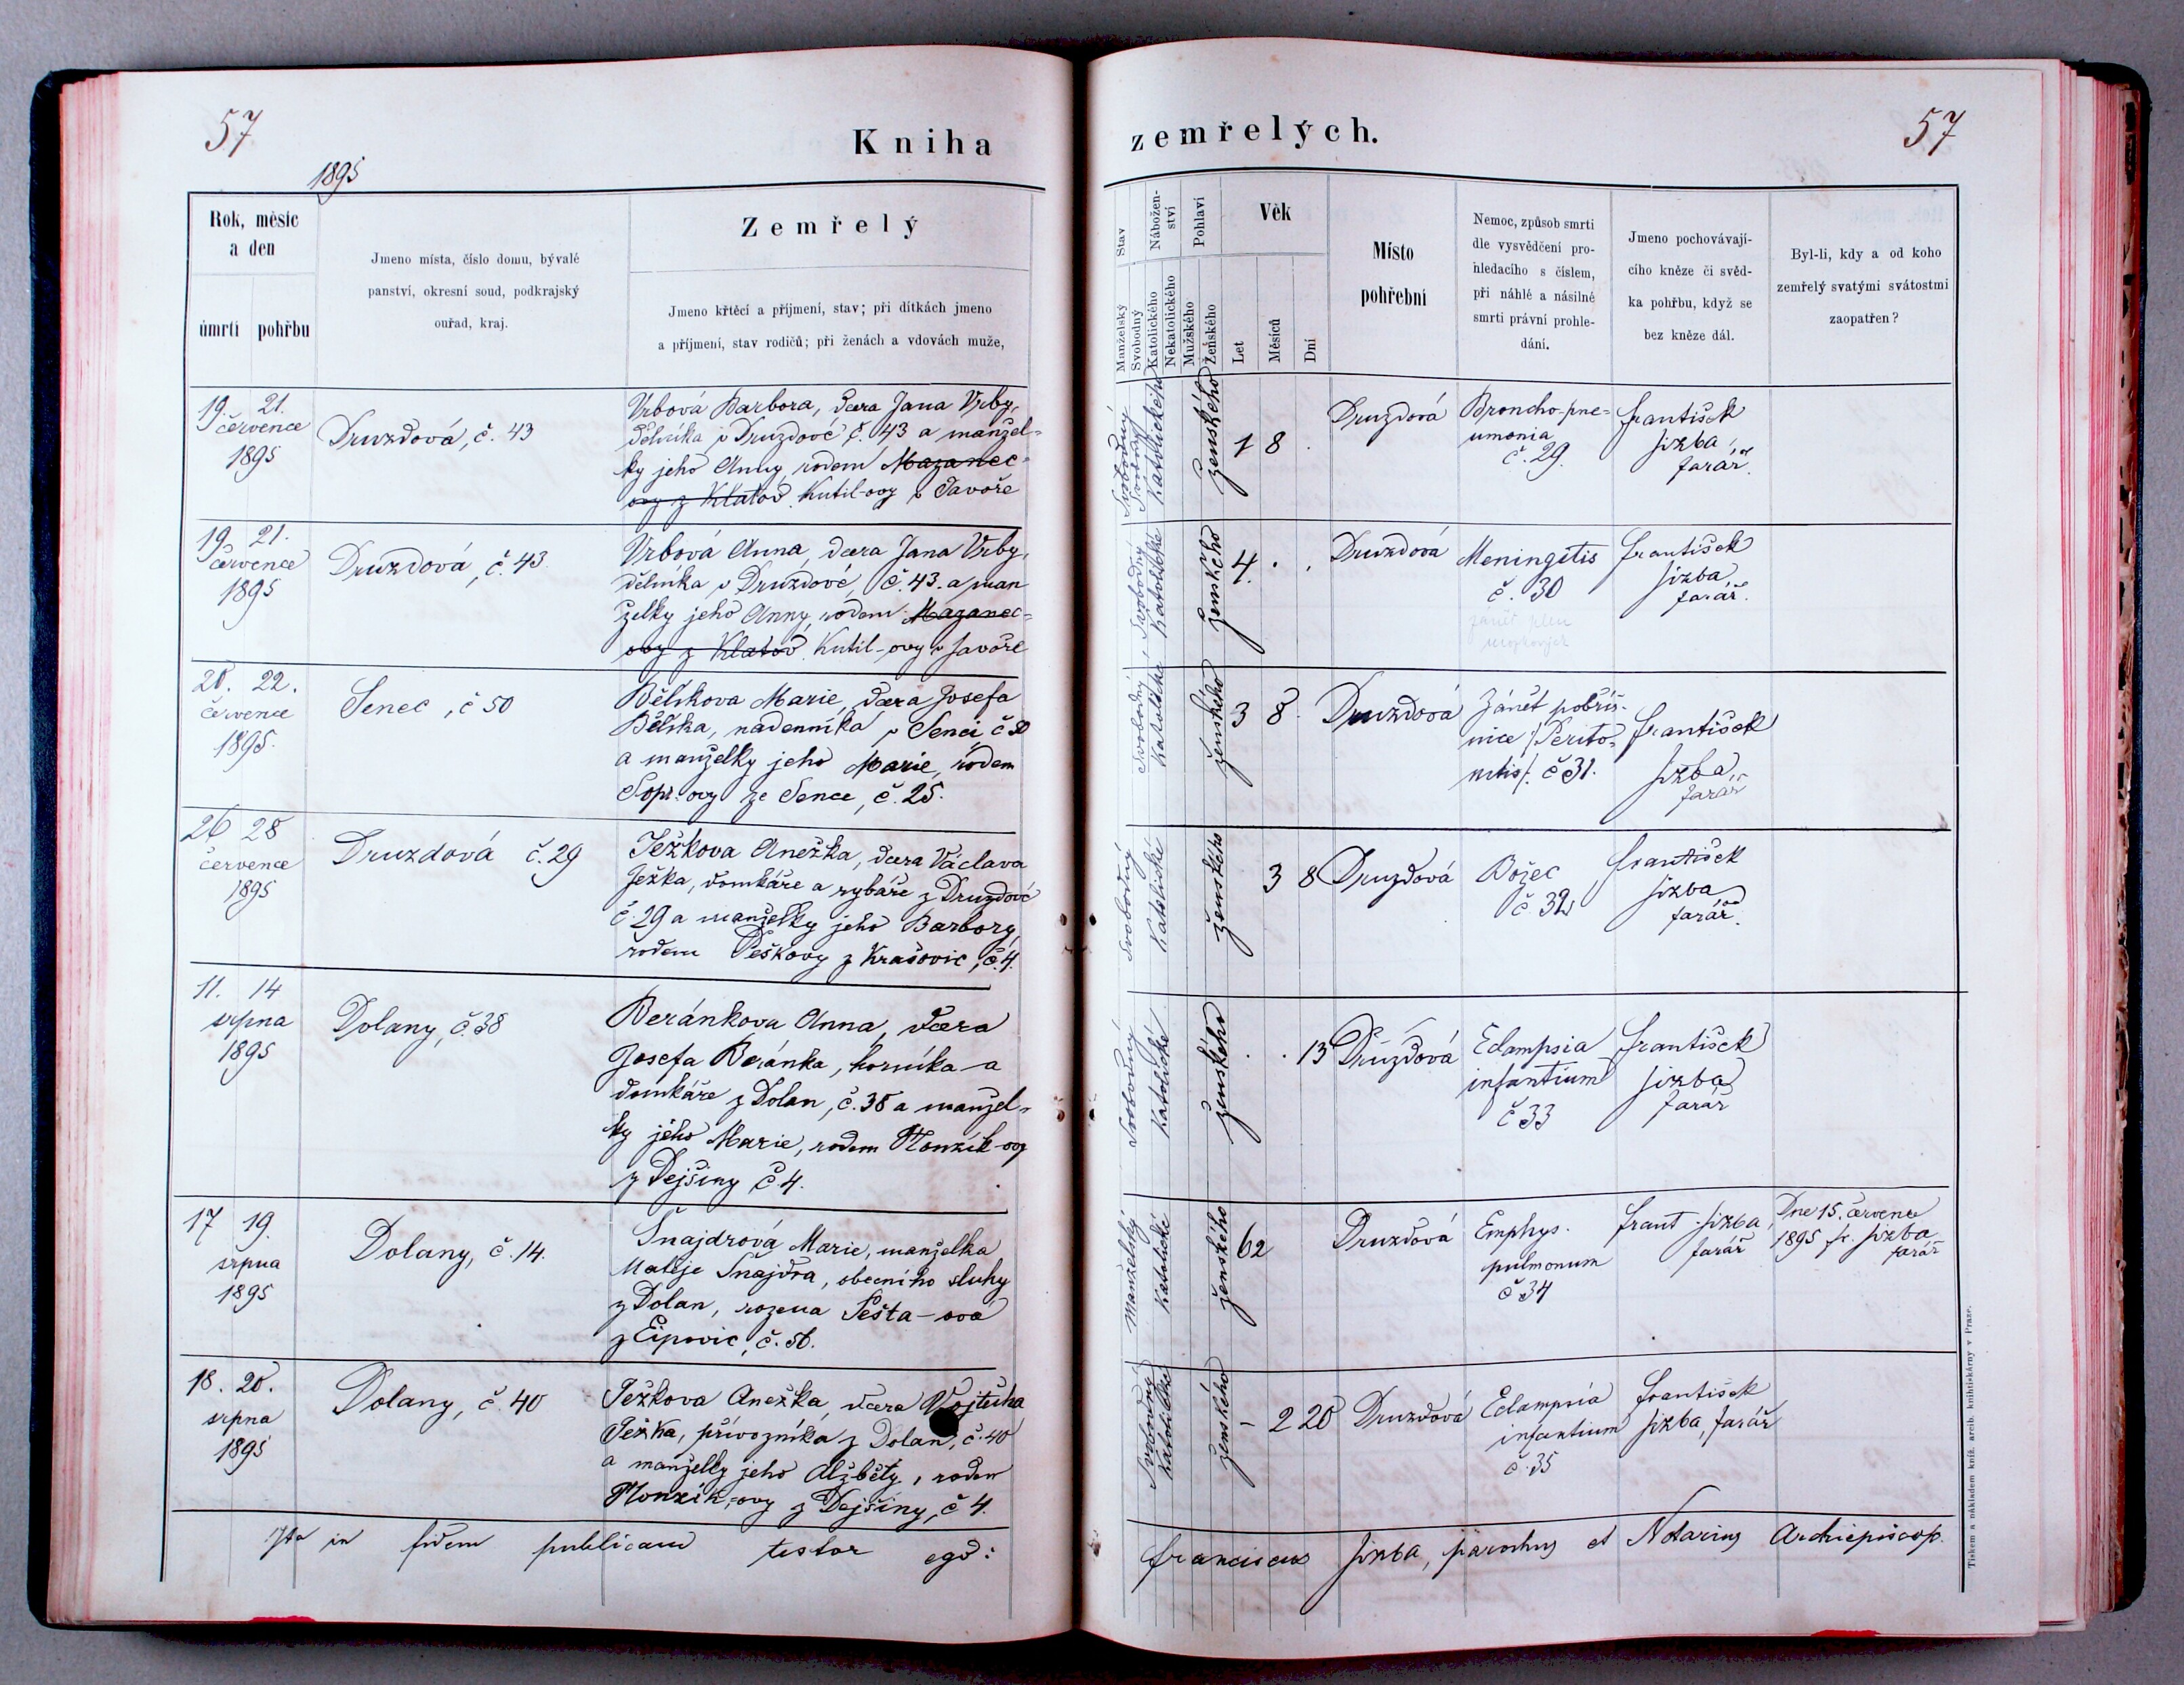 57
Kniha
1895
Rok, měsíc
a den
úmrtí pohřbu
Jmeno místa, číslo domu, bývalé
panství, okresní soud, podkrajský
ouřad, kraj.
Zemřelý
Jmeno křtěcí a příjmení, stav; při dítkách jmeno
a příjmení, stav rodičů; při ženách a vdovách muže,
19. 21.
července
1895
Druzdová, č. 43
Vrbová Barbora, dcera Jana Vrby,
dělníka v Druzdové č. 43 a manžel-
ky jeho Anny, rodem Mazanec-
ovy z Klatov. Kutil-ovy v Javoře
19. 21.
července
1895
Druzdová, č. 43.
Vrbová Anna, dcera Jana Vrby,
dělníka v Druzdové, č. 43. a man
želky jeho Anny, rodem Mazanec-
ovy z Klatov. Kutil-ovy v Javoře
20. 22.
července
1895.
Senec, č 50
Bělíkova Marie, dcera Josefa
Bělíka, nádenníka v Senci č 50
a manželky jeho Marie, rodem
ze Sence, č. 25.
26 28
července
1895
Druzdová č. 29
Ježkova Anežka, dcera Václava
Ježka, domkáře a rybáře z Druzdové
č. 29 a manželky jeho Barbory,
rodem Peškovy z Krašovic, č. 4.
11. 14
srpna
1895
Dolany, č. 38
Beránkova Anna, dcera
Josefa Beránka, horníka a
domkáře z Dolan, č. 38 a manžel-
ky jeho Marie, rodem Honzík-ovy
z Dejšiny č 4.
17 19.
srpna
1895
Dolany, č. 14.
Šnajdrová Marie, manželka
Matěje Šnajdra, obecního sluhy
z Dolan, rozena Šesta-ová
z Ejpovic, č. 56.
18. 20.
srpna
1895
Dolany, č. 40
Ježkova Anežka, dcera Vojtěcha
Ježka, přívozníka z Dolan, č. 40
a manželky jeho Alžběty, rodem
Honzík-ovy z Dejšiny, č 4.
Ita in fidem publicam testor ego:
zemřelých.
57
Stav
Manželský
Svobodný
Nábožen-
ství
Katolického
Nekatolického
Pohlaví
Mužského
Ženského
Věk
Let
Měsíců
Dní
Místo
pohřební
Nemoc, způsob smrti
dle vysvědčení pro-
hledacího s číslem,
při náhlé a násilné
smrti právní prohle-
dání.
Jmeno pochovávají-
cího kněze či svěd-
ka pohřbu, když se
bez kněze dál.
Byl-li, kdy a od koho
zemřelý svatými svátostmi
zaopatřen?
Svobodný
Katolického
ženského
1 8 .
Druzdová
Broncho-pne-
umonia
č. 29.
František
Jizba,
farář.
Svobodný
Katolické
ženského
4. . .
Druzdová
Meningitis
č. 30
zánět plen
mozkových
František
Jizba,
farář.
Svobodný
Katolická
ženského
3 8 .
Druzdová
Zánět pobřiš-
nice /Perito-
nitis/. č 31.
František
Jizba,
farář
Svobodný
Katolické
ženského
3 8
Druzdová
Božec
č. 32
František
Jizba
farář.
Svobodný
Katolické
ženského
. . 13
Druzdová
Eclampsia
infantium
č 33
František
Jizba
farář
Manželský
Katolické
ženského
62
Druzdová
Emphys.
pulmonum
č 34
Frant. Jizba,
farář
Dne 15. července
1895 Fr. Jizba,
farář
Svobodný
Katolické
ženského
- 2 20
Druzdová
Eclampsia
infantium
č. 35
František
Jizba, farář
Franciscus Jizba, parochus et Notarius Archiepiscop.
Tiskem a nákladem kníž. arcib. knihtiskárny v Praze.